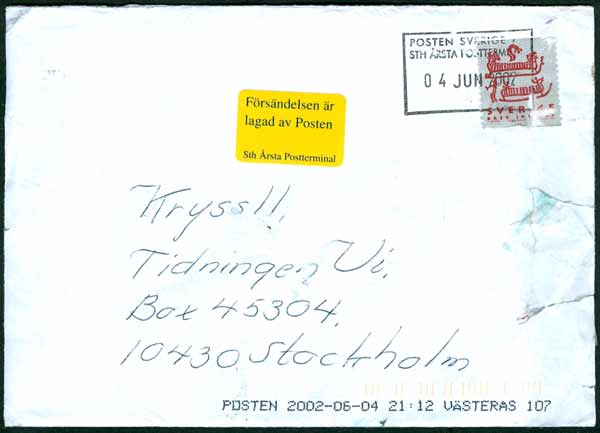 POSTEN SVERIGE 7
STH ÅRSTA POSTTERMINAL
04 JUN 2002
SVERIGE
BREV
Försändelsen är
lagad av Posten
Sth Årsta Postterminal
Kryss 11,
Tidningen Vi,
Box 45304,
10430 Stockholm
POSTEN 2002-06-04 21:12 VÄSTERÅS 107